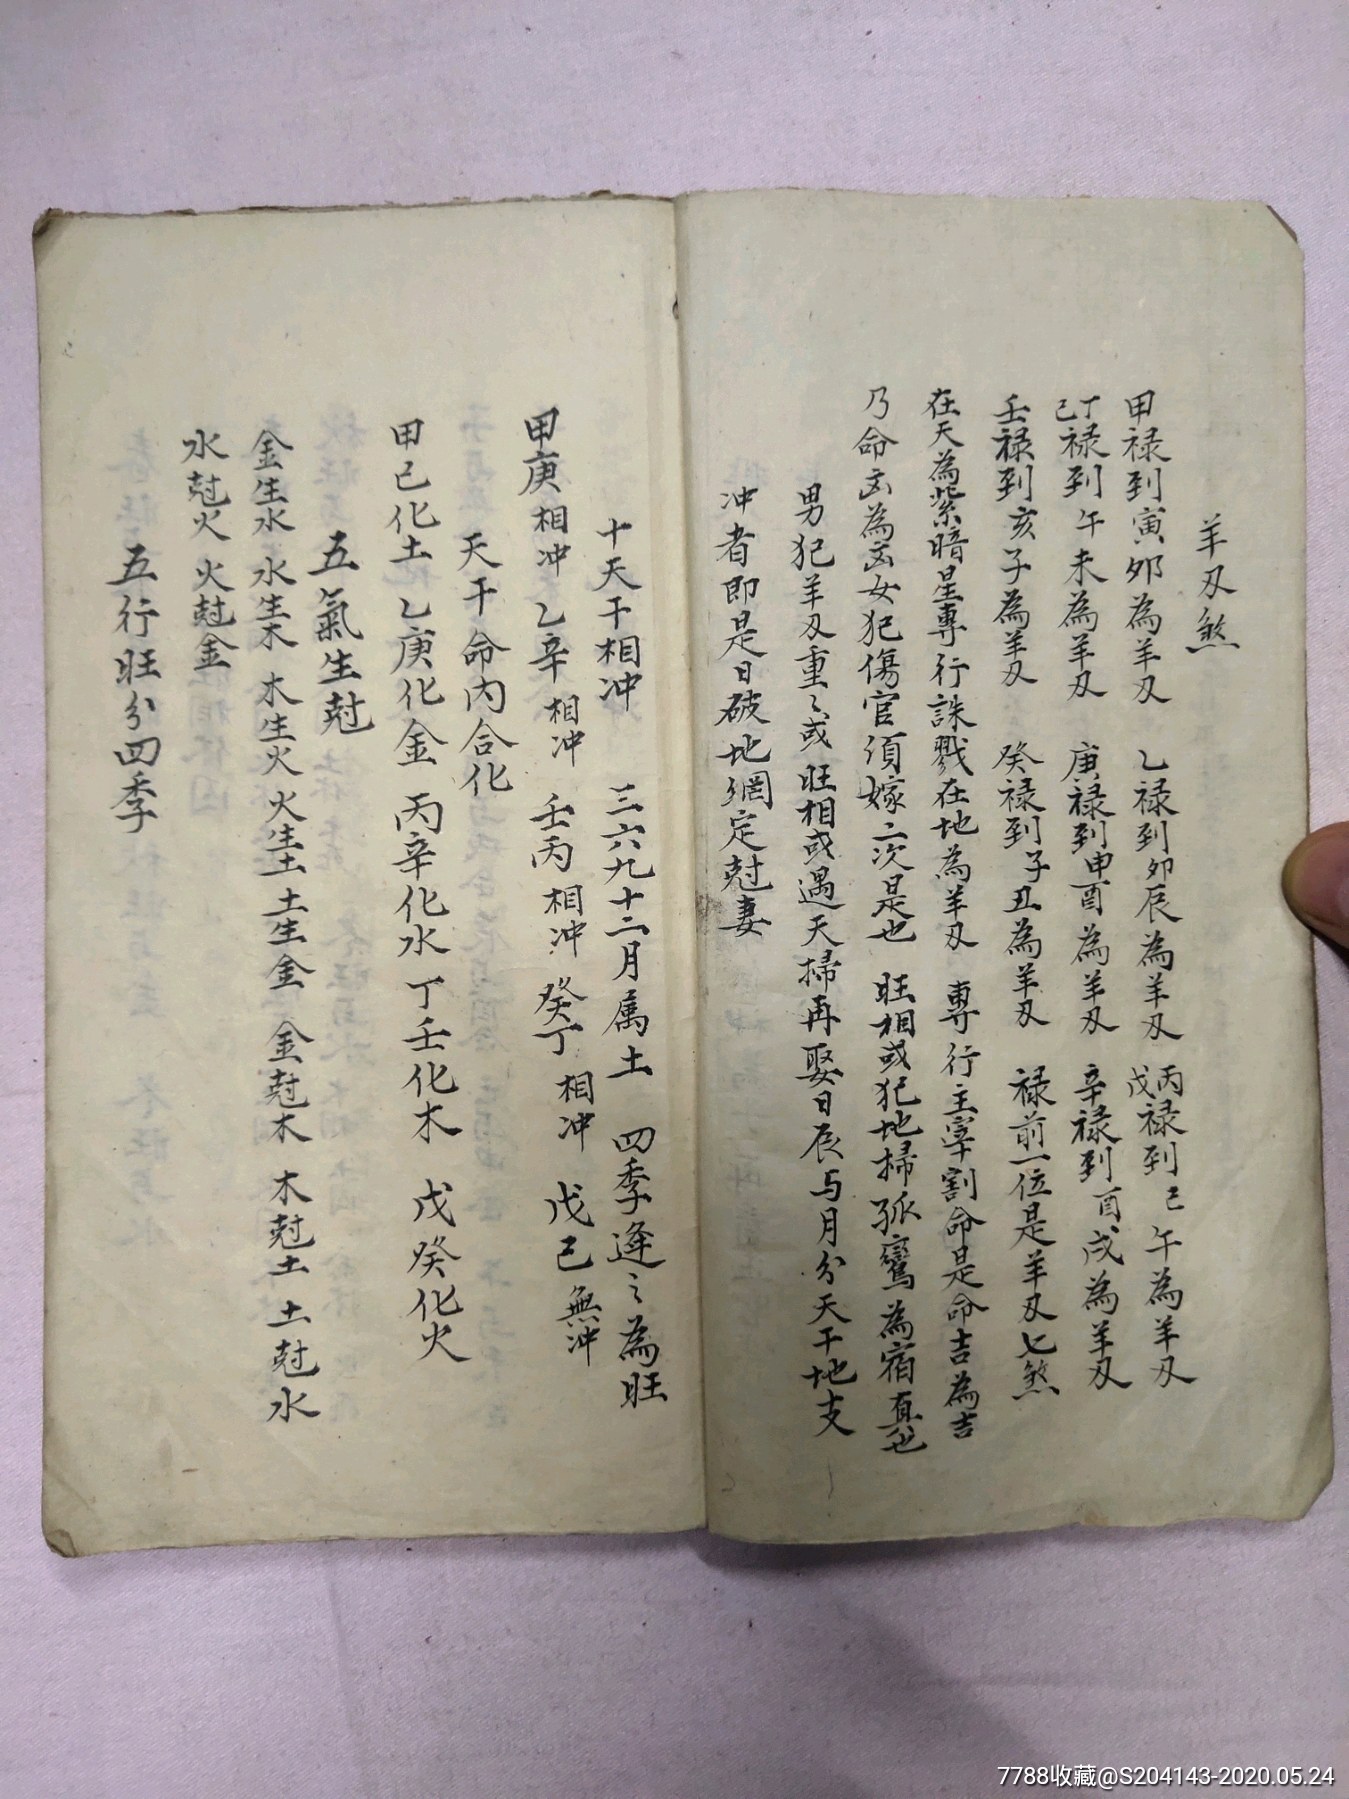 羊刃煞
甲禄到寅夘為羊刃 乙禄到卯辰為羊刃 丙戊禄到巳午為羊刃
丁己禄到午未為羊刃 庚禄到申酉為羊刃 辛禄到酉戌為羊刃
壬禄到亥子為羊刃 癸禄到子丑為羊刃 禄前一位是羊刃七煞
在天為紫暗星專行誅戮在地為羊刃 專行主宰割命是命吉為吉
乃命凶為凶女犯傷官須嫁二次是也 旺相或犯地掃孤鸞為宿真也
男犯羊刃重〻或旺相或遇天掃再娶日辰与月分天干地支
冲者即是日破地網定尅妻
十天干相冲 三六九十二月属土 四季逢〻為旺
甲庚相冲 乙辛相冲 壬丙相冲 癸丁相冲 戊己無冲
天干命内合化
甲己化土 乙庚化金 丙辛化水 丁壬化木 戊癸化火
五氣生尅
金生水 水生木 木生火 火生土 土生金 金尅木 木尅土 土尅水
水尅火 火尅金
五行旺分四季
7788收藏@S204143-2020.05.24